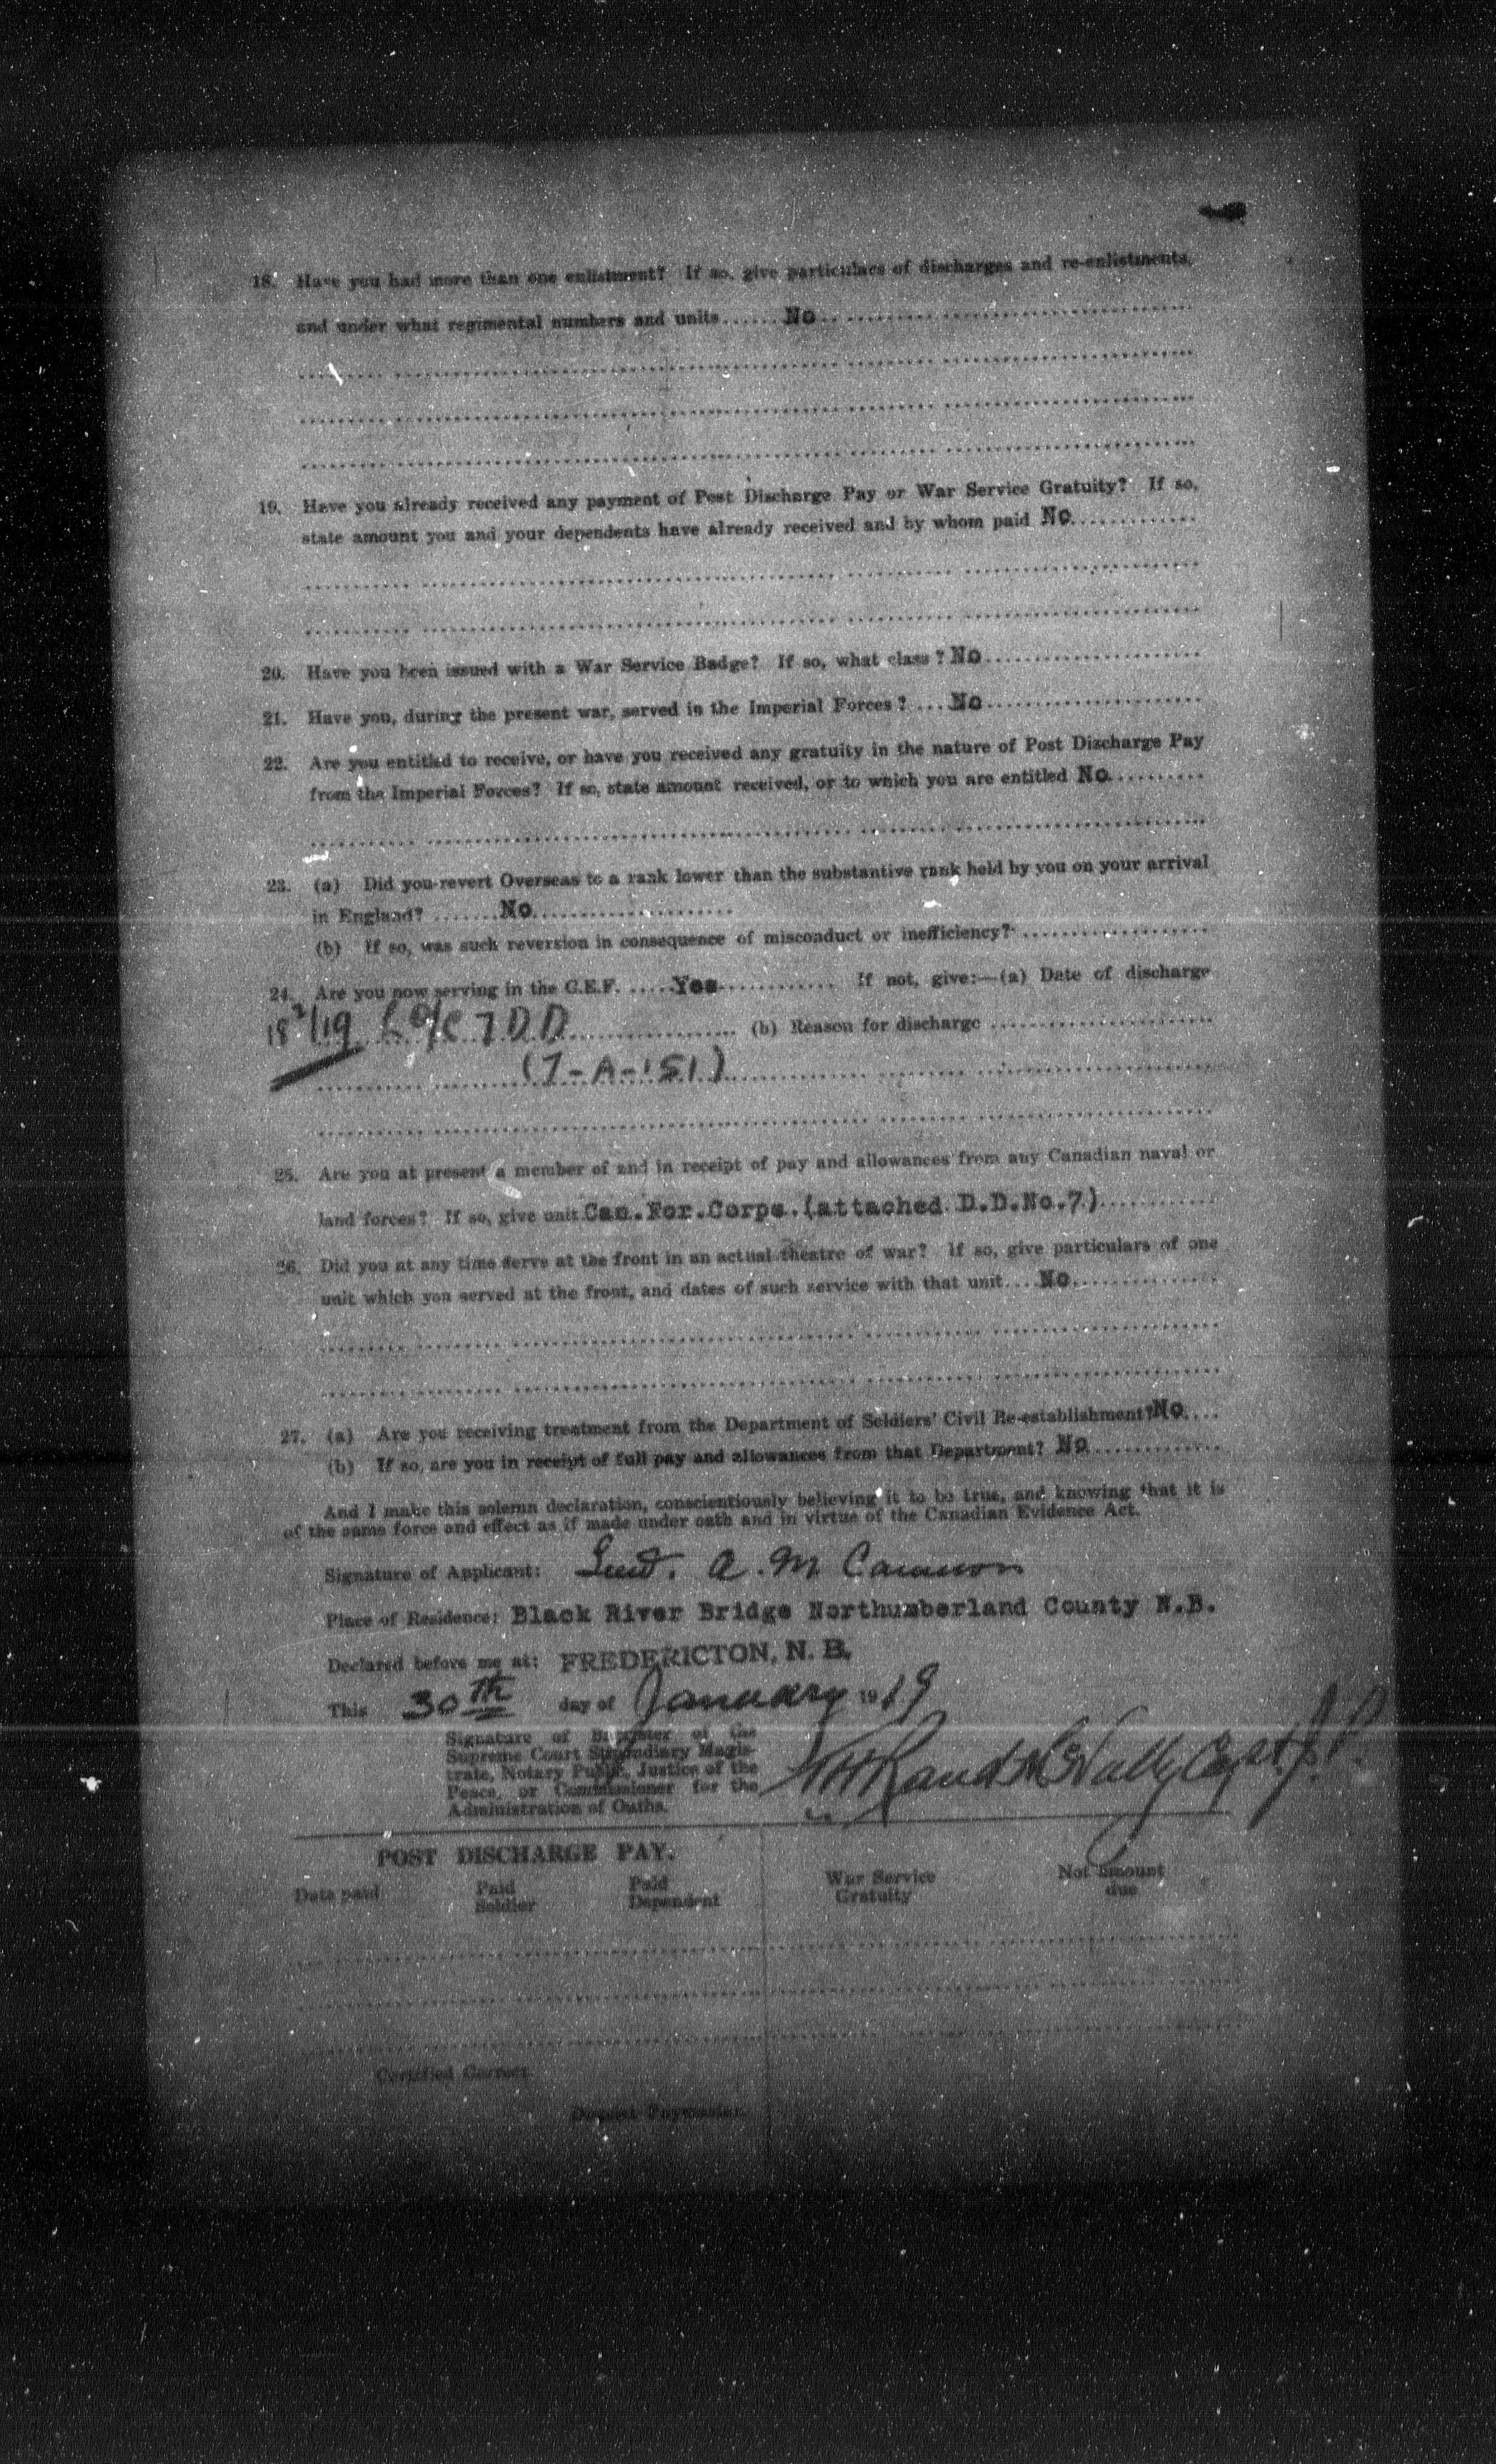 18. Have you had more than one enlistment? If so, give particulars of discharges and re-enlistments,
and under what regimental numbers and units......No
19. Have you already received any payment of Post Discharge Pay or War Service Gratuity? If so,
state amount you and your dependents have already received and by whom paid No
20. Have you been issued with a War Service Badge? If so, what class? No
21. Have you, during the present war, served in the Imperial Forces? ...No
22. Are you entitled to receive, or have you received any gratuity in the nature of Post Discharge Pay
from the Imperial Forces? If so, state amount received, or to which you are entitled No
23. (a) Did you revert Overseas to a rank lower than the substantive rank held by you on your arrival
in England? .......No
(b) If so, was such reversion in consequence of misconduct or inefficiency?
24. Are you now serving in the C.E.F. .....Yes............ If not, give:—(a) Date of discharge
18 2/19 7 D D (b) Reason for discharge
(7-A-151)
25. Are you at present a member of and in receipt of pay and allowances from any Canadian naval or
land forces? If so, give unit Can.For.Corps.(attached D.D.No.7)
26. Did you at any time serve at the front in an actual theatre of war? If so, give particulars of one
unit which you served at the front, and dates of such service with that unit....No
27. (a) Are you receiving treatment from the Department of Soldiers' Civil Re-establishment? No
(b) If so, are you in receipt of full pay and allowances from that Department? No
And I make this solemn declaration, conscientiously believing it to be true, and knowing that it is
of the same force and effect as if made under oath and in virtue of the Canadian Evidence Act.
Signature of Applicant: Lieut. A. M. Cameron
Place of Residence: Black River Bridge Northumberland County N.B.
Declared before me at: FREDERICTON, N. B.
This 30th day of January 1919
Signature of Barrister of the
Supreme Court Stipendiary Magis-
trate, Notary Public, Justice of the
Peace, or Commissioner for the
Administration of Oaths.
Capt. J.P.
POST DISCHARGE PAY.
Date paid Paid Soldier Paid Dependent War Service Gratuity Net amount due
Certified Correct
Depot Paymaster.